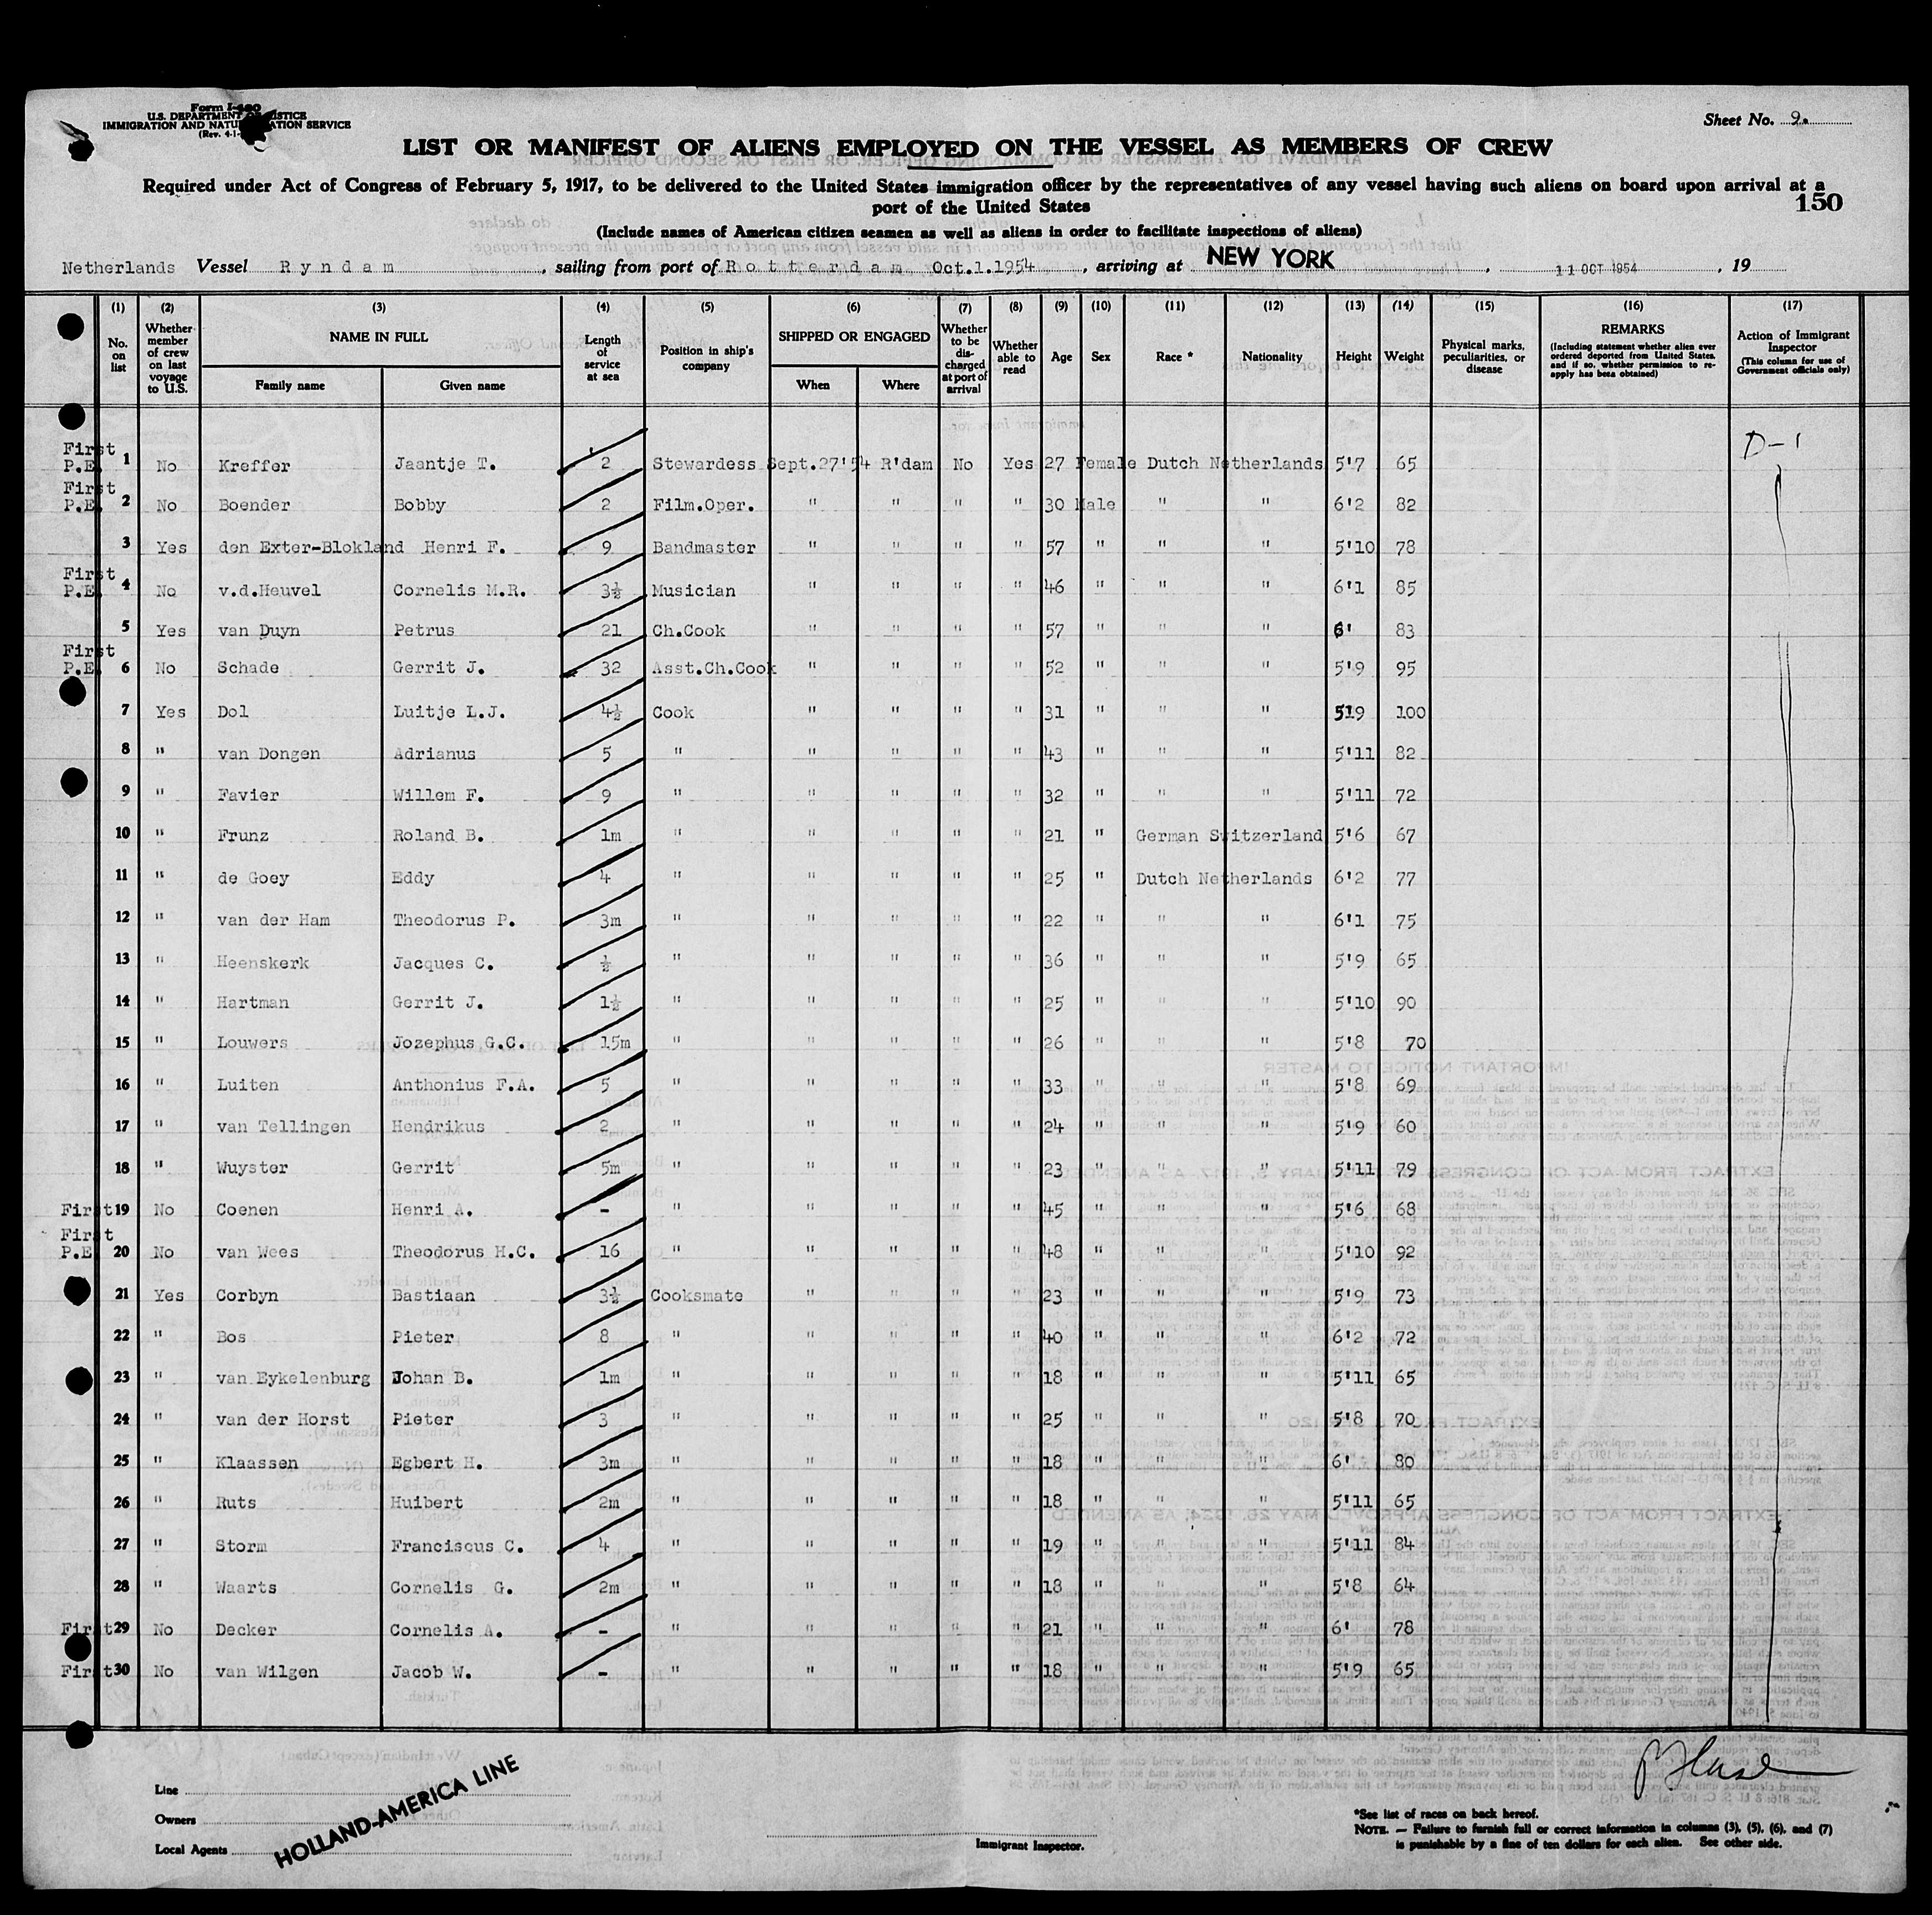 Form I-
U.S. DEPARTMENT OF JUSTICE
IMMIGRATION AND NATURALIZATION SERVICE
(Rev. 4-1-
Sheet No. 9.
LIST OR MANIFEST OF ALIENS EMPLOYED ON THE VESSEL AS MEMBERS OF CREW
Required under Act of Congress of February 5, 1917, to be delivered to the United States immigration officer by the representatives of any vessel having such aliens on board upon arrival at a
port of the United States
150
(Include names of American citizen seamen as well as aliens in order to facilitate inspections of aliens)
Netherlands Vessel Ryndam, sailing from port of Rotterdam Oct.1.1954, arriving at NEW YORK, 11 OCT 1954, 19
(1) (2) (3) (4) (5) (6) (7) (8) (9) (10) (11) (12) (13) (14) (15) (16) (17)
No. on list
Whether member of crew on last voyage to U.S.
NAME IN FULL
Family name Given name
Length of service at sea
Position in ship's company
SHIPPED OR ENGAGED
When Where
Whether to be discharged at port of arrival
Whether able to read
Age
Sex
Race *
Nationality
Height
Weight
Physical marks, peculiarities, or disease
REMARKS
(Including statement whether alien ever ordered deported from United States, and if so, whether permission to re-apply has been obtained)
Action of Immigrant Inspector
(This column for use of Government officials only)
D-1
First P.E. 1 No Kreffer Jaantje T. 2 Stewardess Sept.27'54 R'dam No Yes 27 Female Dutch Netherlands 5'7 65
First P.E. 2 No Boender Bobby 2 Film.Oper. " " " " 30 Male " " 6'2 82
3 Yes den Exter-Blokland Henri F. 9 Bandmaster " " " " 57 " " " 5'10 78
First P.E. 4 No v.d.Heuvel Cornelis M.R. 3½ Musician " " " " 46 " " " 6'1 85
5 Yes van Duyn Petrus 21 Ch.Cook " " " " 57 " " " 6' 83
First P.E. 6 No Schade Gerrit J. 32 Asst.Ch.Cook " " " " 52 " " " 5'9 95
7 Yes Dol Luitje L.J. 4½ Cook " " " " 31 " " " 5'9 100
8 " van Dongen Adrianus 5 " " " " " 43 " " " 5'11 82
9 " Favier Willem F. 9 " " " " " 32 " " " 5'11 72
10 " Frunz Roland B. 1m " " " " " 21 " German Switzerland 5'6 67
11 " de Goey Eddy 4 " " " " " 25 " Dutch Netherlands 6'2 77
12 " van der Ham Theodorus P. 3m " " " " " 22 " " " 6'1 75
13 " Heenskerk Jacques C. ½ " " " " " 36 " " " 5'9 65
14 " Hartman Gerrit J. 1½ " " " " " 25 " " " 5'10 90
15 " Louwers Jozephus G.C. 15m " " " " " 26 " " " 5'8 70
16 " Luiten Anthonius F.A. 5 " " " " " 33 " " " 5'8 69
17 " van Tellingen Hendrikus 2 " " " " " 24 " " " 5'9 60
18 " Wuyster Gerrit 5m " " " " " 23 " " " 5'11 79
First 19 No Coenen Henri A. - " " " " " 45 " " " 5'6 68
First P.E. 20 No van Wees Theodorus H.C. 16 " " " " " 48 " " " 5'10 92
21 Yes Corbyn Bastiaan 3½ Cooksmate " " " " 23 " " " 5'9 73
22 " Bos Pieter 8 " " " " " 40 " " " 6'2 72
23 " van Eykelenburg Johan B. 1m " " " " " 18 " " " 5'11 65
24 " van der Horst Pieter 3 " " " " " 25 " " " 5'8 70
25 " Klaassen Egbert H. 3m " " " " " 18 " " " 6' 80
26 " Ruts Huibert 2m " " " " " 18 " " " 5'11 65
27 " Storm Franciscus C. 4 " " " " " 19 " " " 5'11 84
28 " Waarts Cornelis G. 2m " " " " " 18 " " " 5'8 64
First 29 No Decker Cornelis A. - " " " " " 21 " " " 6' 78
First 30 No van Wilgen Jacob W. - " " " " " 18 " " " 5'9 65
Line
Owners
Local Agents
HOLLAND-AMERICA LINE
Immigrant Inspector.
*See list of races on back hereof.
NOTE. — Failure to furnish full or correct information in columns (3), (5), (6), and (7)
is punishable by a fine of ten dollars for each alien. See other side.